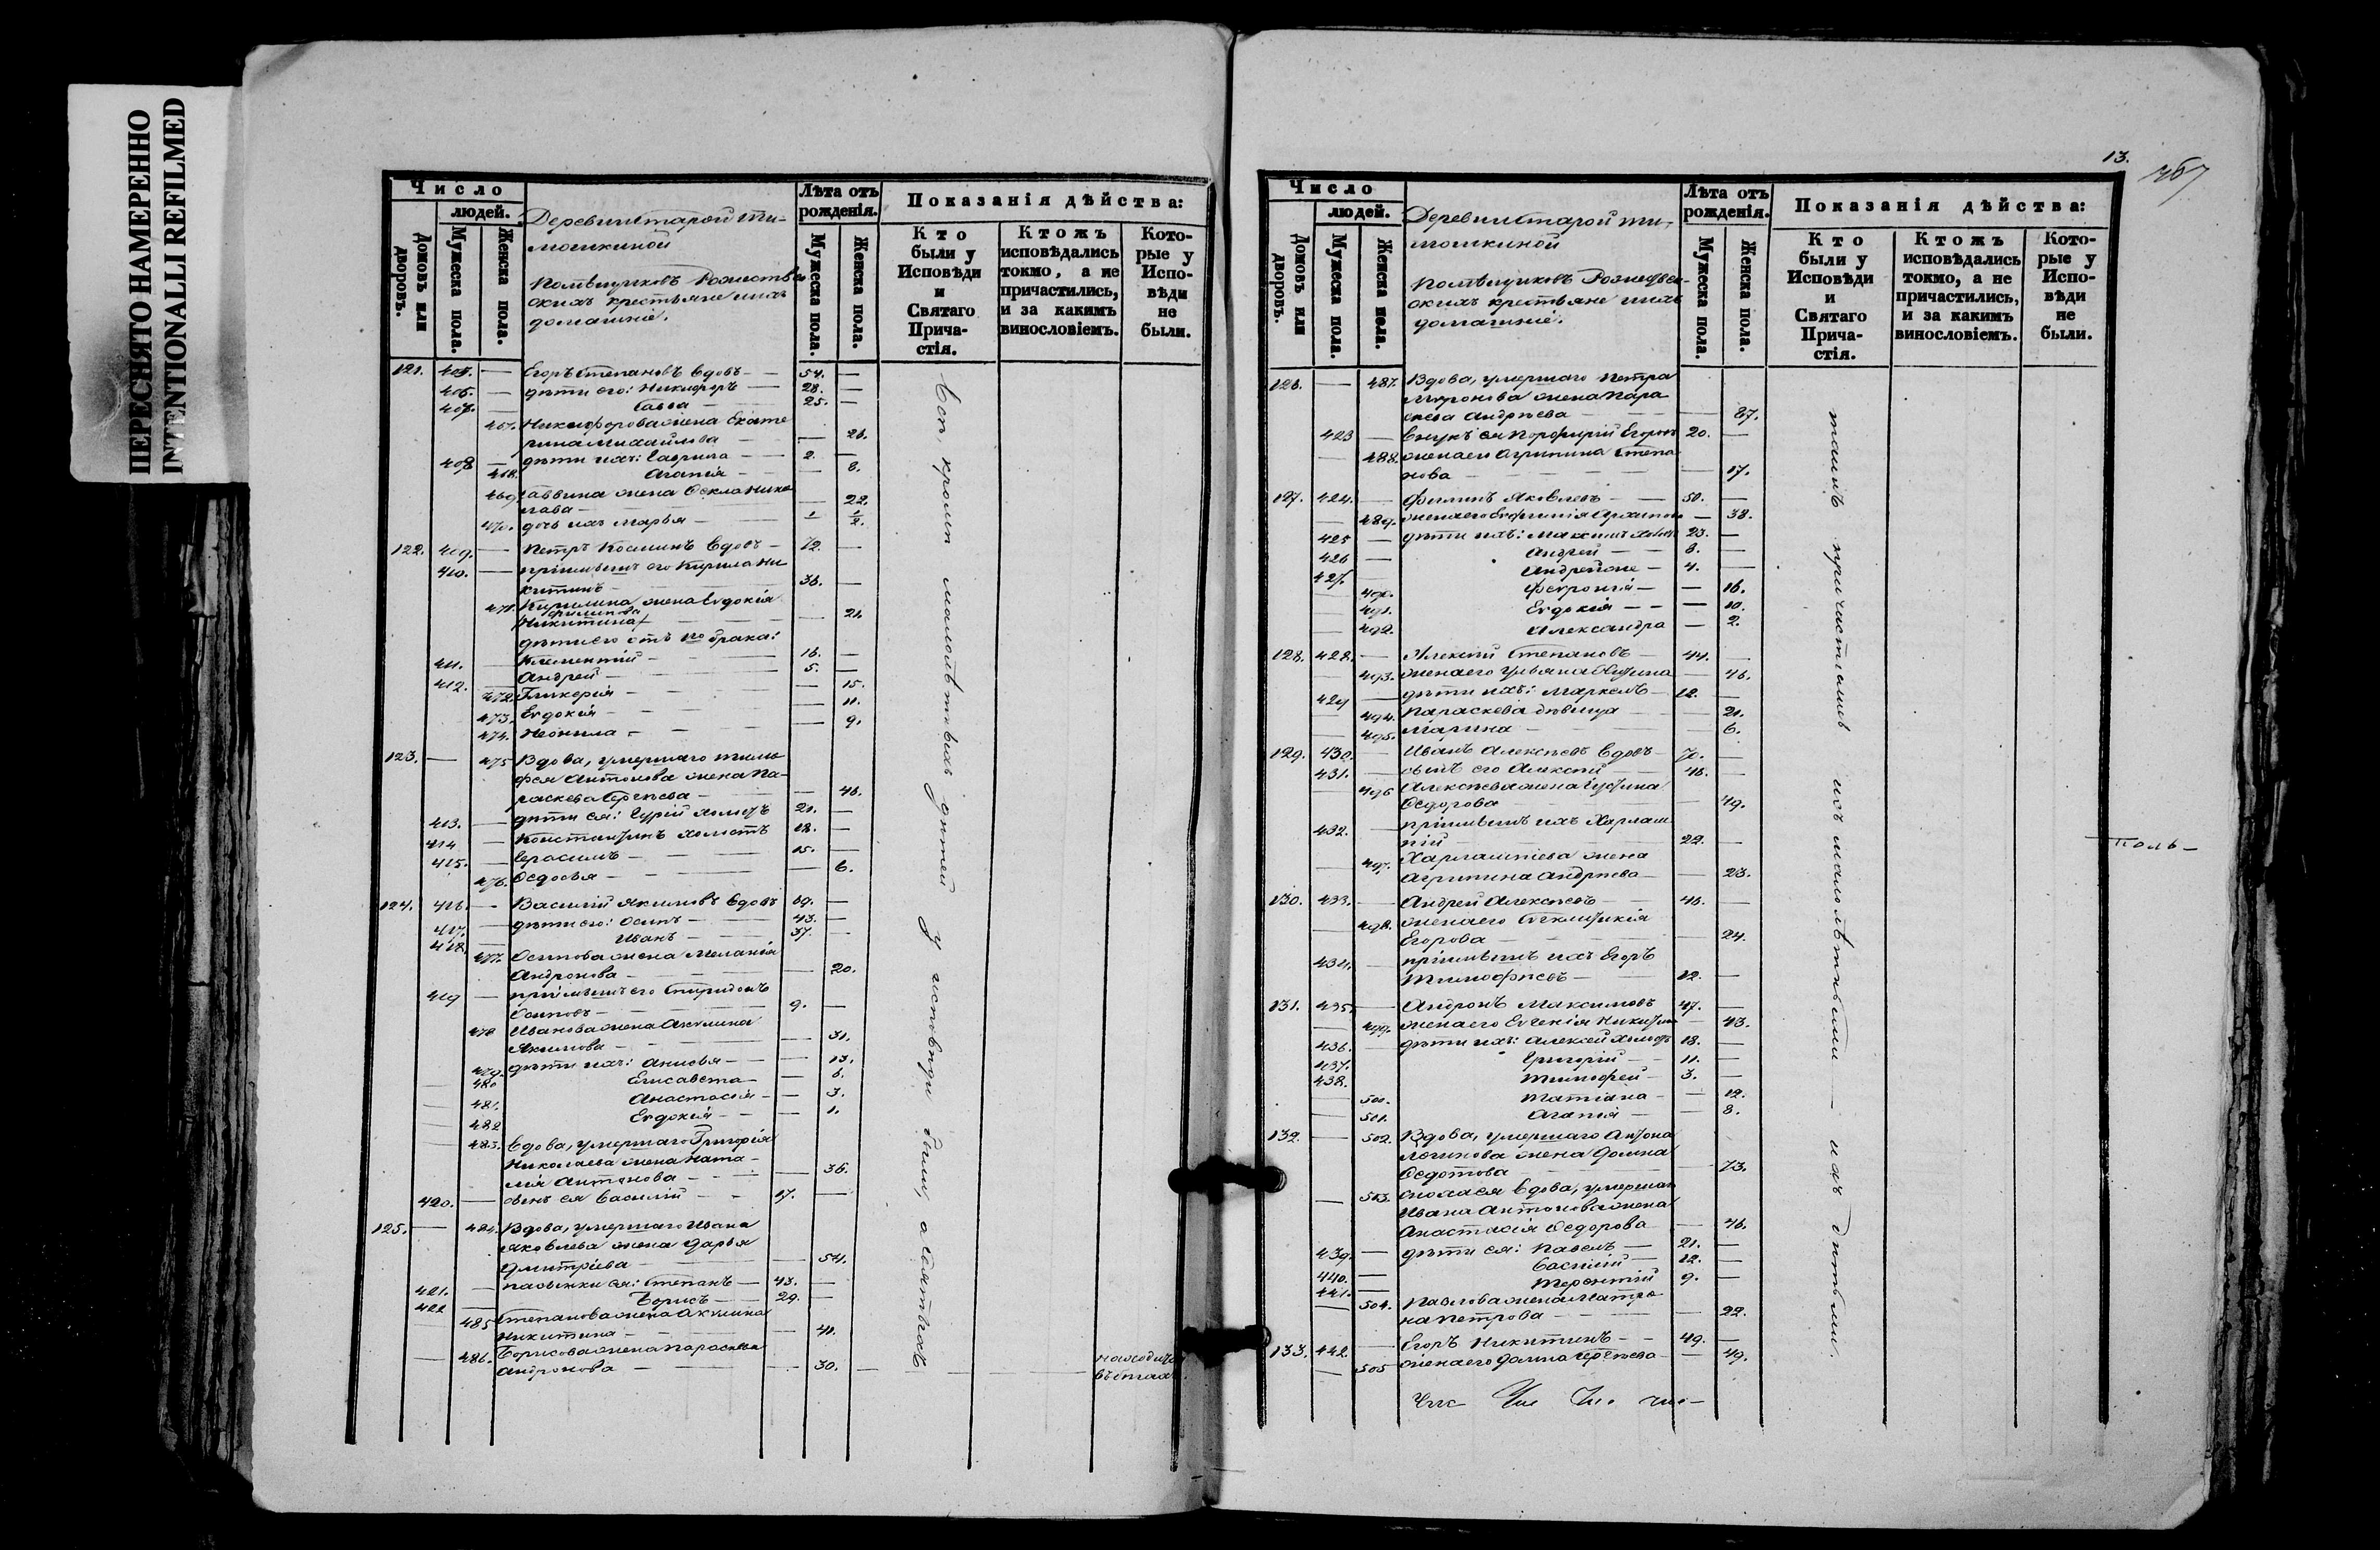 ПЕРЕСНЯТО НАМЕРЕННО
INTENTIONALLI REFILMED
Число
людей.
Домовъ или дворовъ.
Мужеска пола.
Женска пола.
Деревни Старой Ти-
мошкиной
Помѣщиковъ Рожестве-
скихъ крестьяне и ихъ
домашніе.
Лѣта отъ рожденія.
Мужеска пола.
Женска пола.
Показанія дѣйства:
Кто были у Исповѣди и Святаго Прича-стія.
Ктожъ исповѣдались токмо, а не причастились, и за какимъ винословіемъ.
Кото-рые у Испо-вѣди не были.
121. 405. — Егоръ Степановъ вдовъ — 54. —
406. — дѣти его: Никифоръ — 28. —
407. — Савва — 25. —
467. Никифорова жена Екате
рина Михайлова — — 26.
408 — дѣти ихъ: Гаврила — 2. —
468. Агапія — — 8.
469 Саввина жена Ѳекла Нико
лаева — — 22.
470. дочь ихъ Марья — 1/2.
122. 409. — Петръ Козминъ вдовъ — 72. —
410. — пріимышъ его Кирила Ни
китинъ — 36. —
471. Кирилина жена Евдокія
Филипова
Никитина — — 26
дѣти его отъ 1го брака:
411. — Климентій — 16. —
412. — Андрей — 5. —
472. Гликерія — — 15.
473. Евдокія — — 11.
474. Неонила — — 9.
123. — 475 Вдова, умершаго Тимо-
фея Антонова жена Па-
раскева Сергѣева — — 46.
413. — дѣти ея: Гурій холостъ 21. —
414 — Константинъ холостъ 18. —
415. — Герасимъ — 15. —
476. Ѳедосья — — 6.
124. 416. — Василій Якимовъ вдовъ 69. —
417. — дѣти его: Осипъ — 43. —
418. — Иванъ — 37. —
477. Осипова жена Меланія
Андронова — — 20.
419 — пріимышъ его Спиридонъ
Осиповъ — 9. —
478 Иванова жена Акулина
Якимова — — 31.
479. дѣти ихъ: Анисья — — 13.
480 Елисавета — — 6.
481. Анастасія — — 3.
482 Евдокія — — 1.
483. Вдова, умершаго Григорія
Николаева жена Ната-
лія Антонова — — 36.
420. — сынъ ея Василій — 17. —
125. — 484. Вдова, умершаго Ивана
Яковлева жена Дарья
Дмитріева — — 54.
421. — пасынки ея: Степанъ — 43. —
422 — Борисъ — 29. —
485 Степанова жена Акулина
Никитина — — 41.
486. Борисова жена Параскева
Андронова — — 30.
Всѣ, кромѣ малолѣтныхъ дѣтей у исповѣди были, а Святыхъ
находится
въ бѣгахъ
13.
Число
людей.
Домовъ или дворовъ.
Мужеска пола.
Женска пола.
Деревни Старой Ти-
мошкиной
Помѣщиковъ Рождествен-
скихъ крестьяне и ихъ
домашніе.
Лѣта отъ рожденія.
Мужеска пола.
Женска пола.
Показанія дѣйства:
Кто были у Исповѣди и Святаго Прича-стія.
Ктожъ исповѣдались токмо, а не причастились, и за какимъ винословіемъ.
Кото-рые у Испо-вѣди не были.
126. — 487. Вдова, умершаго Петра
Миронова жена Пара
скева Андреева — — 67.
423 — внукъ ея Порфирій Егоровъ 20. —
488. жена его Агрипина Степа
нова — — 17.
127. 424. — Филипъ Яковлевъ — 50. —
489. жена его Евфимія Архипова — 38.
425 — дѣти ихъ: Максимъ холостъ 23. —
426 — Андрей — 8. —
427. — Андрей же — 4. —
490. Феврония — — 16.
491. Евдокія — — 10.
492. Александра — 2.
128. 428. — Алексій Степановъ — 44. —
493. жена его Ульяна Никитина — 46.
429 — дѣти ихъ: Маркелъ — 12. —
494. Параскева дѣвица — — 21.
495. Марина — — 6.
129. 430. — Иванъ Алексѣевъ вдовъ — 70. —
431. — сынъ его Алексій — 46. —
496 Алексѣева жена Іустина
Ѳедорова — — 49.
432. — пріимышъ ихъ Харлам
пій — 22. —
497. Харлампіева жена
Агрипина Андреева — — 23.
130. 433. — Андрей Алексѣевъ — 46. —
498. жена его Стклитикія
Егорова — — 24.
434. — пріимышъ ихъ Егоръ
Тимофѣевъ — 12. —
131. 435. — Андронъ Максимовъ 47. —
499. жена его Евгенія Никитина — 43.
436. — дѣти ихъ: Алексей холостъ 18. —
437. Григорій — 11. —
438. Тимофей — 3. —
500. Татіана — — 12.
501. Агапія — — 8.
132. — 502. Вдова, умершаго Антона
Логинова жена Домна
Ѳедотова — — 73.
503. сноха ея вдова, умершаго
Ивана Антонова жена
Анастасія Ѳедорова — 46.
439. — дѣти ея: Павелъ — 21. —
440. — Василій — 12. —
441. — Терентій 9. —
504. Павлова жена Матро
на Петрова — — 22.
133. 442. — Егоръ Никитинъ — 49. —
505 жена его Домна Сергѣева — — 49.
таинъ причастились и съ малолѣтными — ихъ дѣтьми.
толь-